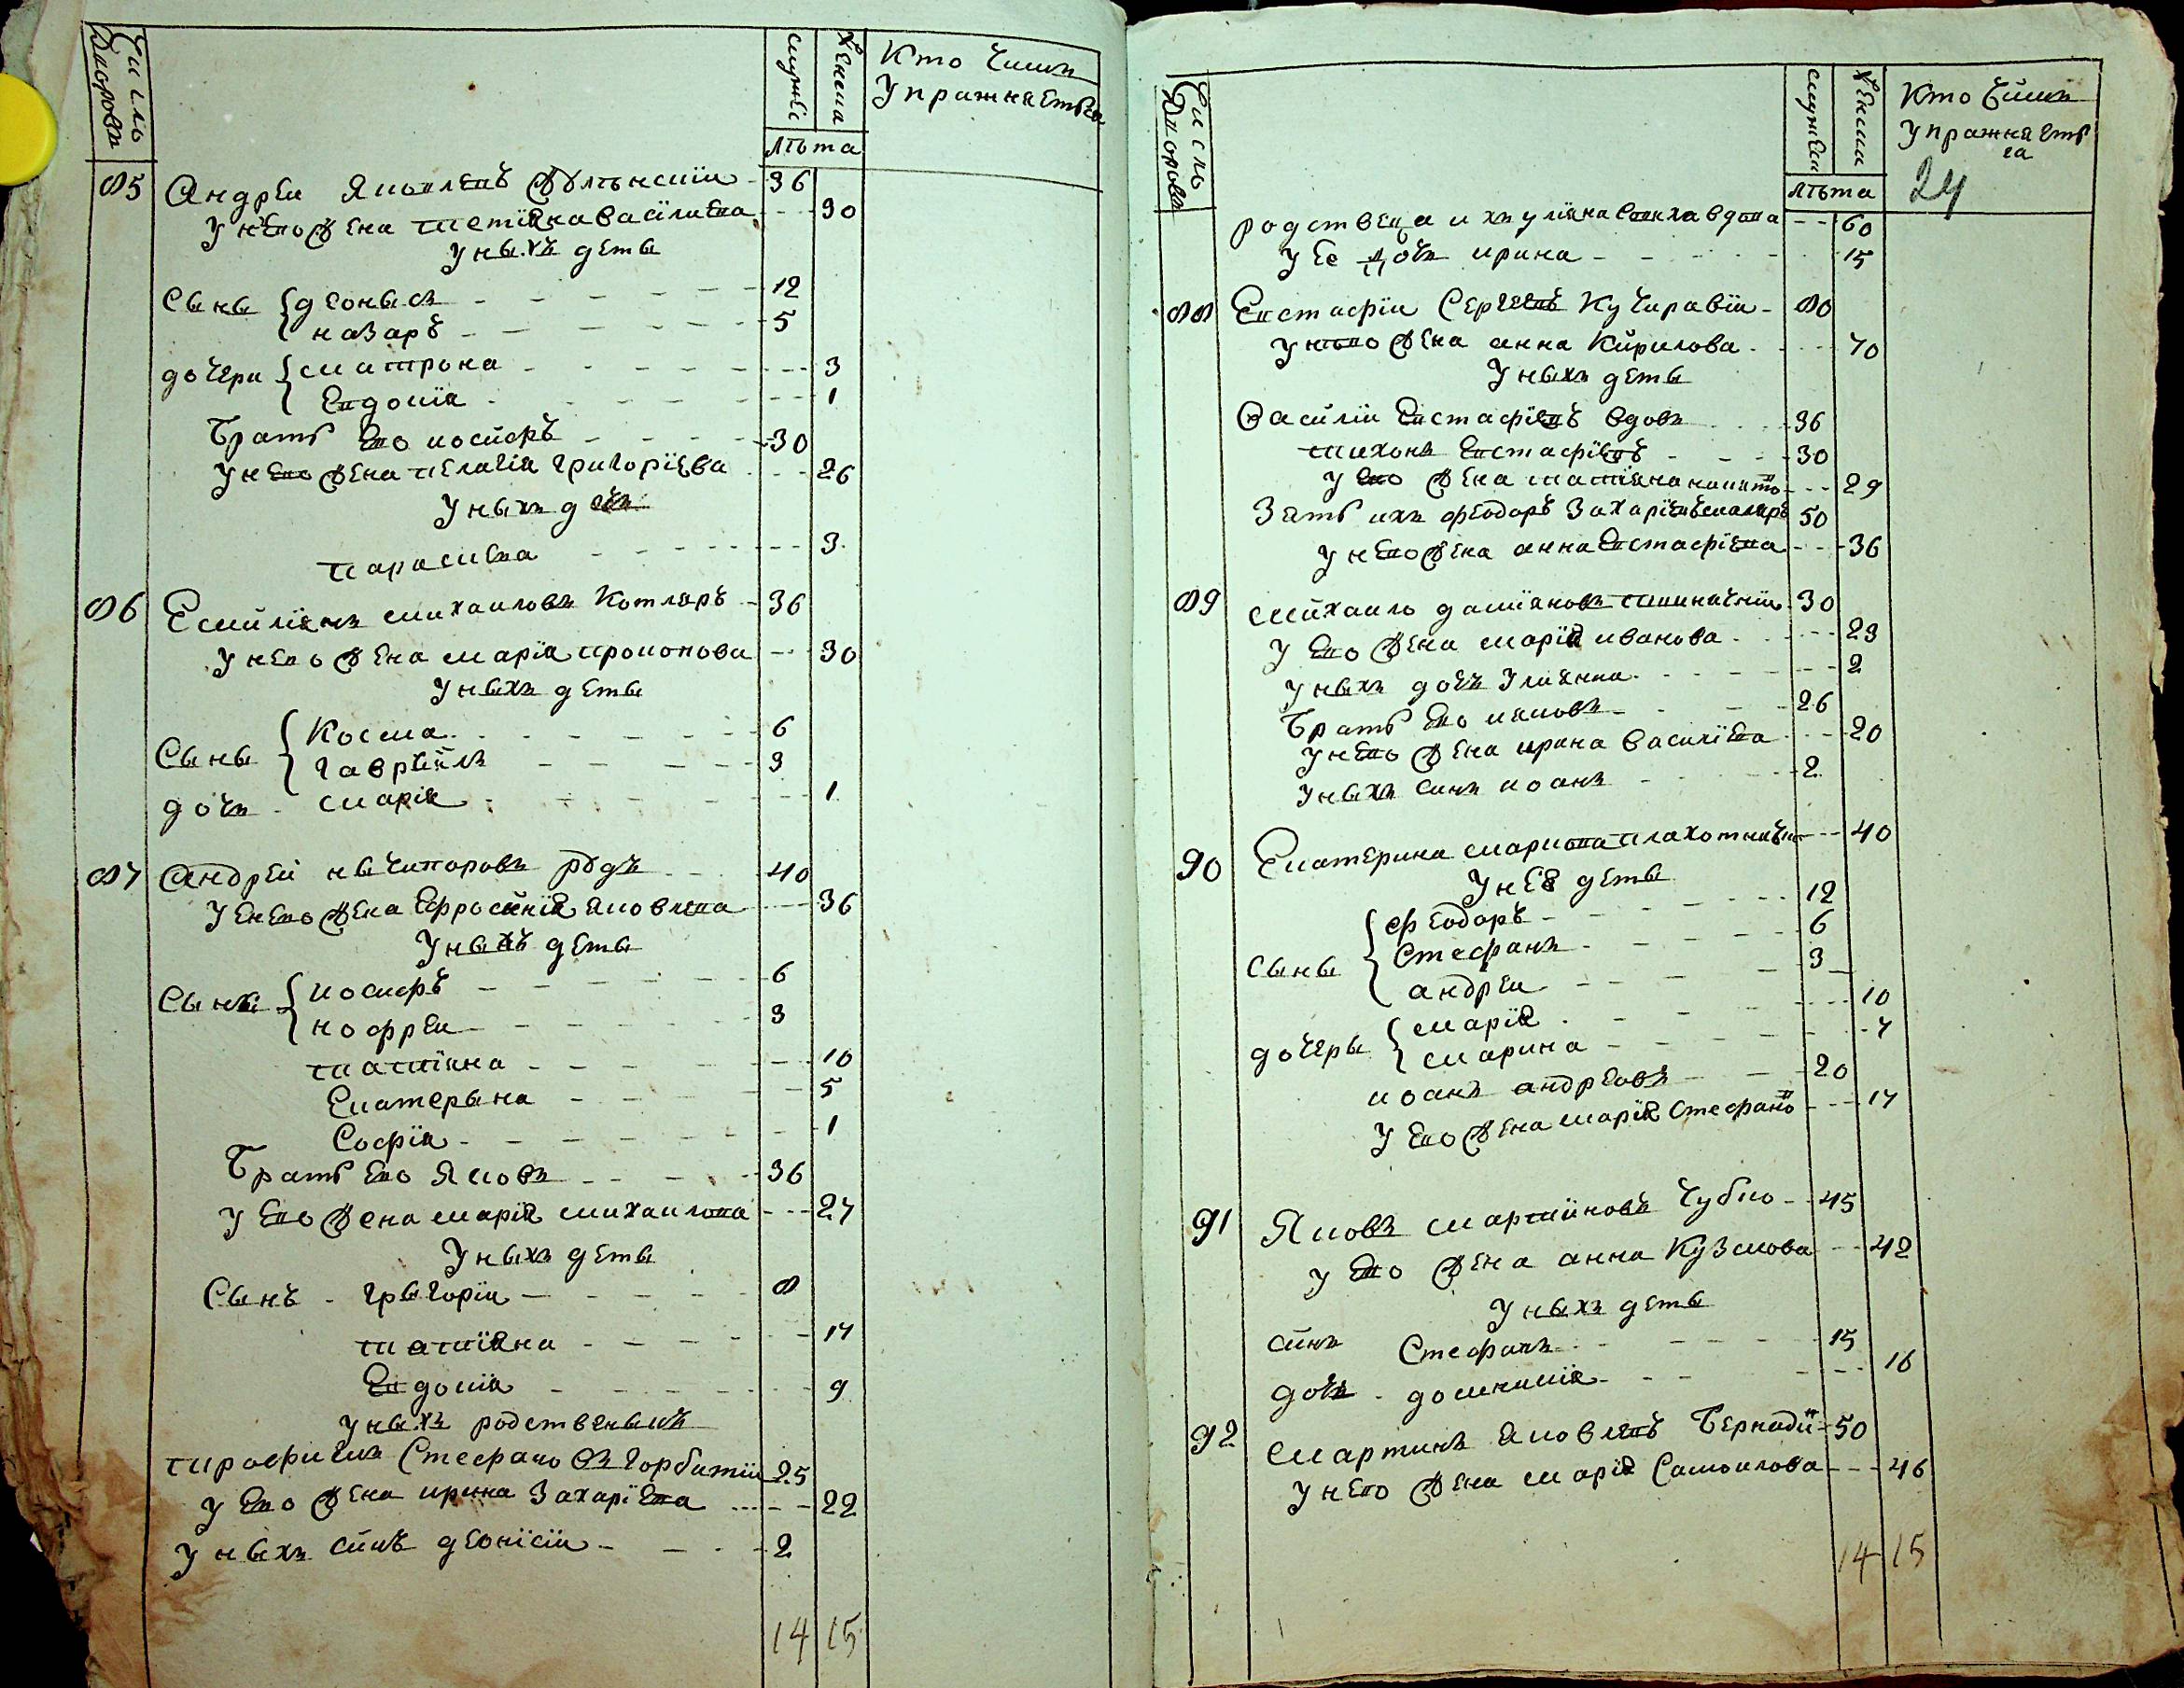 Число Дворовъ
мужес
женска
Лѣта
Кто чимъ
Упражняется
85 Андреи Яковлевъ 36
У него жена Тетияна Василиева 30
У ныхъ деты
Сыны Деонысъ 12
Назаръ 5
дочери Матрона 3
Евдокія 1
Братъ его Иосифъ 30
У него жена Пелагія Григоріева 26
У ныхъ дочъ
Параскева 3
86 Емилиянъ Михаиловъ Котляръ 36
У него жена Марія Прокопова 30
У ныхъ деты
Сыны Косма 6
Гавріилъ 3
дочъ Марія 1
87 Андрей Нычипоровъ 40
У него жена Ефросинія Яковлева 36
У ныхъ деты
Сыны Иосифъ 6
Нофреи 3
Татіяна 10
Екатерына 5
Софія 1
Братъ его Яковъ 36
У его жена Марія Михаилова 27
У ныхъ деты
Сынъ Грыгоріи 8
Татіяна 17
Евдокія 9
У ныхъ родственыкъ
Трофимъ Стефановъ Горбатіи 25
У его жена Ирина Захаріева 22
У ныхъ синъ Деонісіи 2
14 15
Число Дворовъ
мужеск
женска
Лѣта
Кто чимъ
Упражняет
ся
24
родственца ихъ Уліяна вдова 60
У ее дочъ Ирина 15
88 Евстафіи Сергеевъ Кучиравіи 80
У него жена Анна Кирилова 70
У ныхъ деты
Василіи Евстафіевъ вдовъ 36
Тихонъ Евстафіевъ 30
У его жена Татіяна 29
Зять ихъ Феодоръ Захаріевъ 50
У него жена Анна Евстафіева 36
89 Михаило Даміяновъ 30
У его жена Марія Иванова 23
У ныхъ дочъ Улиянна 2
Братъ его Иаковъ 26
У него жена Ирина Василіева 20
У ныхъ синъ Иоанъ 2
90 Екатерина Маркова 40
У неё деты
Сыны Феодоръ 12
Стефанъ 6
Андреи 3
дочеры Марія 10
Марина 7
Иоанъ Андреовъ 20
У его жена Марія Стефанов 17
91 Яковъ Мартиновъ Чубко 45
У его жена Анна Кузмова 42
У ныхъ деты
Синъ Стефанъ 15
дочъ Домникія 16
92 Мартинъ Яковлевъ 50
У него жена Марія Самоилова 46
14 15